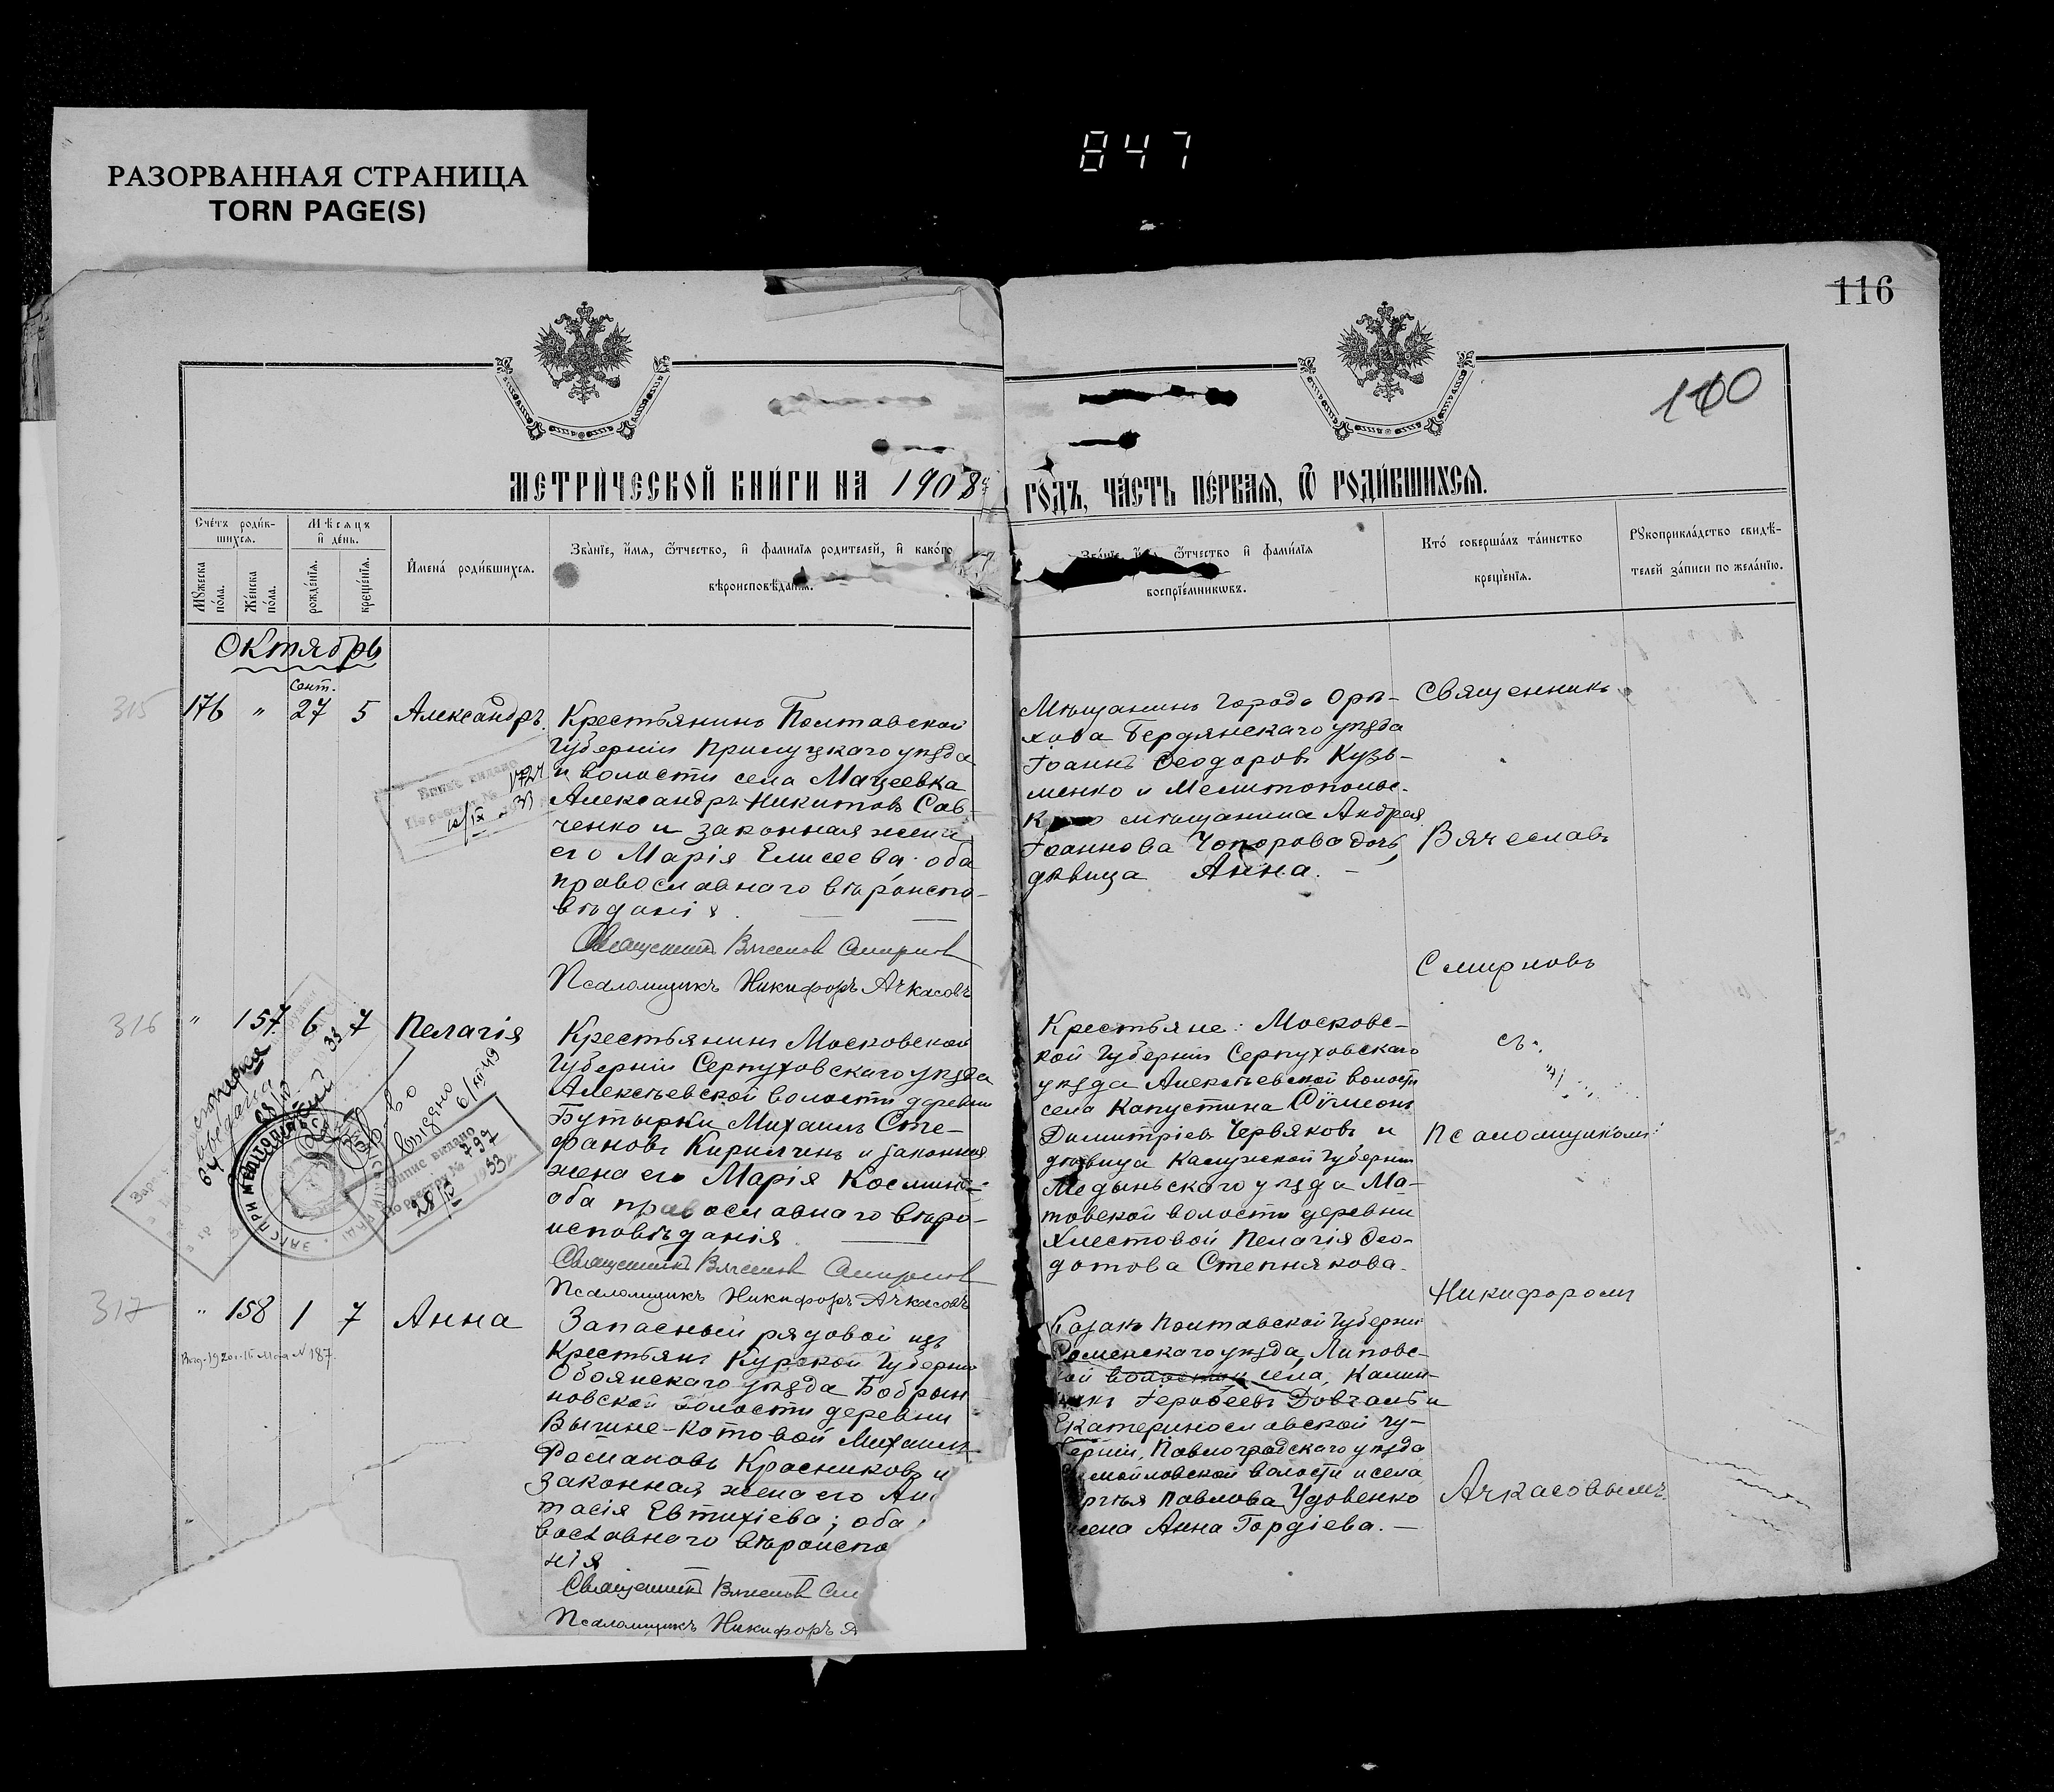 РАЗОРВАННАЯ СТРАНИЦА
TORN PAGE(S)
847
116
100
МЕТРИЧЕСКОЙ КНИГИ НА 1908
ГОДЪ, ЧАСТЬ ПЕРВАЯ, Ѿ РОДИВШИХСЯ.
Счетъ родив-
шихся.
Мѣсяцъ
и день.
Мужеска
пола.
Женска
пола.
рожденїя.
крещенїя.
Имена родившихся.
Званїе, имя, ѿтчество, и фамилїя родителей, и какого
вѣроисповѣданїя.
Званїе, ѿтчество и фамилїя
воспрїемникѡвъ.
Кто совершалъ таинство
крещенїя.
Рукоприкладство свидѣ-
телей записи по желанїю.
Октябрь
315
176 " Сент. 27 5
Александръ.
Крестьянинъ Полтавской
Губерніи Прилуцкаго уѣзда
и волости села Мацеевка
Александръ Никитовъ Сав-
ченко и законная жена
его Марія Елисеева; оба
православнаго вѣроиспо-
вѣданія.
Священникъ Вячеслав Смирнов
Псаломщикъ Никифоръ Ачкасовъ
Мѣщанинъ города Орѣ-
хова Бердянскаго уѣзда
Іоаннъ Ѳеодоровъ Кузь-
менко и Мелитопольс-
мѣщанина Андрея
Іоаннова Чопорова дочь,
дѣвица Анна. —
Священникъ
Вячеславъ
Смирновъ
съ
Псаломщикомъ
Никифоромъ
Ачкасовымъ.
316
" 157 6 7
Пелагія
Крестьянинъ Московской
Губерніи Серпуховскаго уѣзда
Алексѣевской волости деревни
Бутырки Михаилъ Сте-
фановъ Кирилинъ и законная
жена его Марія Космина;
оба православнаго вѣро-
исповѣданія.
Священникъ Вячеслав Смирнов
Псаломщикъ Никифоръ Ачкасовъ
Крестьяне: Московс-
кой Губерніи Серпуховскаго
уѣзда Алексѣевской волости
села Капустина Сѵмеонъ
Димитріевъ Червяковъ и
дѣвица Калужской Губерніи
Медыньскаго уѣзда Ма-
товской волости деревни
Хлестовой Пелагія Ѳео-
дотова Степнякова.
выдано
Выпис выдано
По реестру № 797
28/IV 1933
317
" 158 1 7
Анна
№ 187
Запасный рядовой изъ
крестьянъ Курской Губерніи
Обоянскаго уѣзда Бобрын-
новской волости деревни
Вышне-Котовой Михаилъ
Романовъ Красниковъ и
законная жена его
тасія Евтихіева; оба
вославнаго вѣроиспо
нія
Священникъ Вячеслав См
Псаломщикъ Никифоръ А
Казакъ Полтавской Губерніи
Роменскаго уѣзда, Липовс-
кой волости села,
Іеровеевъ Довгаль и
Екатеринославской Гу-
берніи, Павлоградскаго уѣзда
мойловской волости и села
Павлова Удовенко
жена Анна Гордіева. —